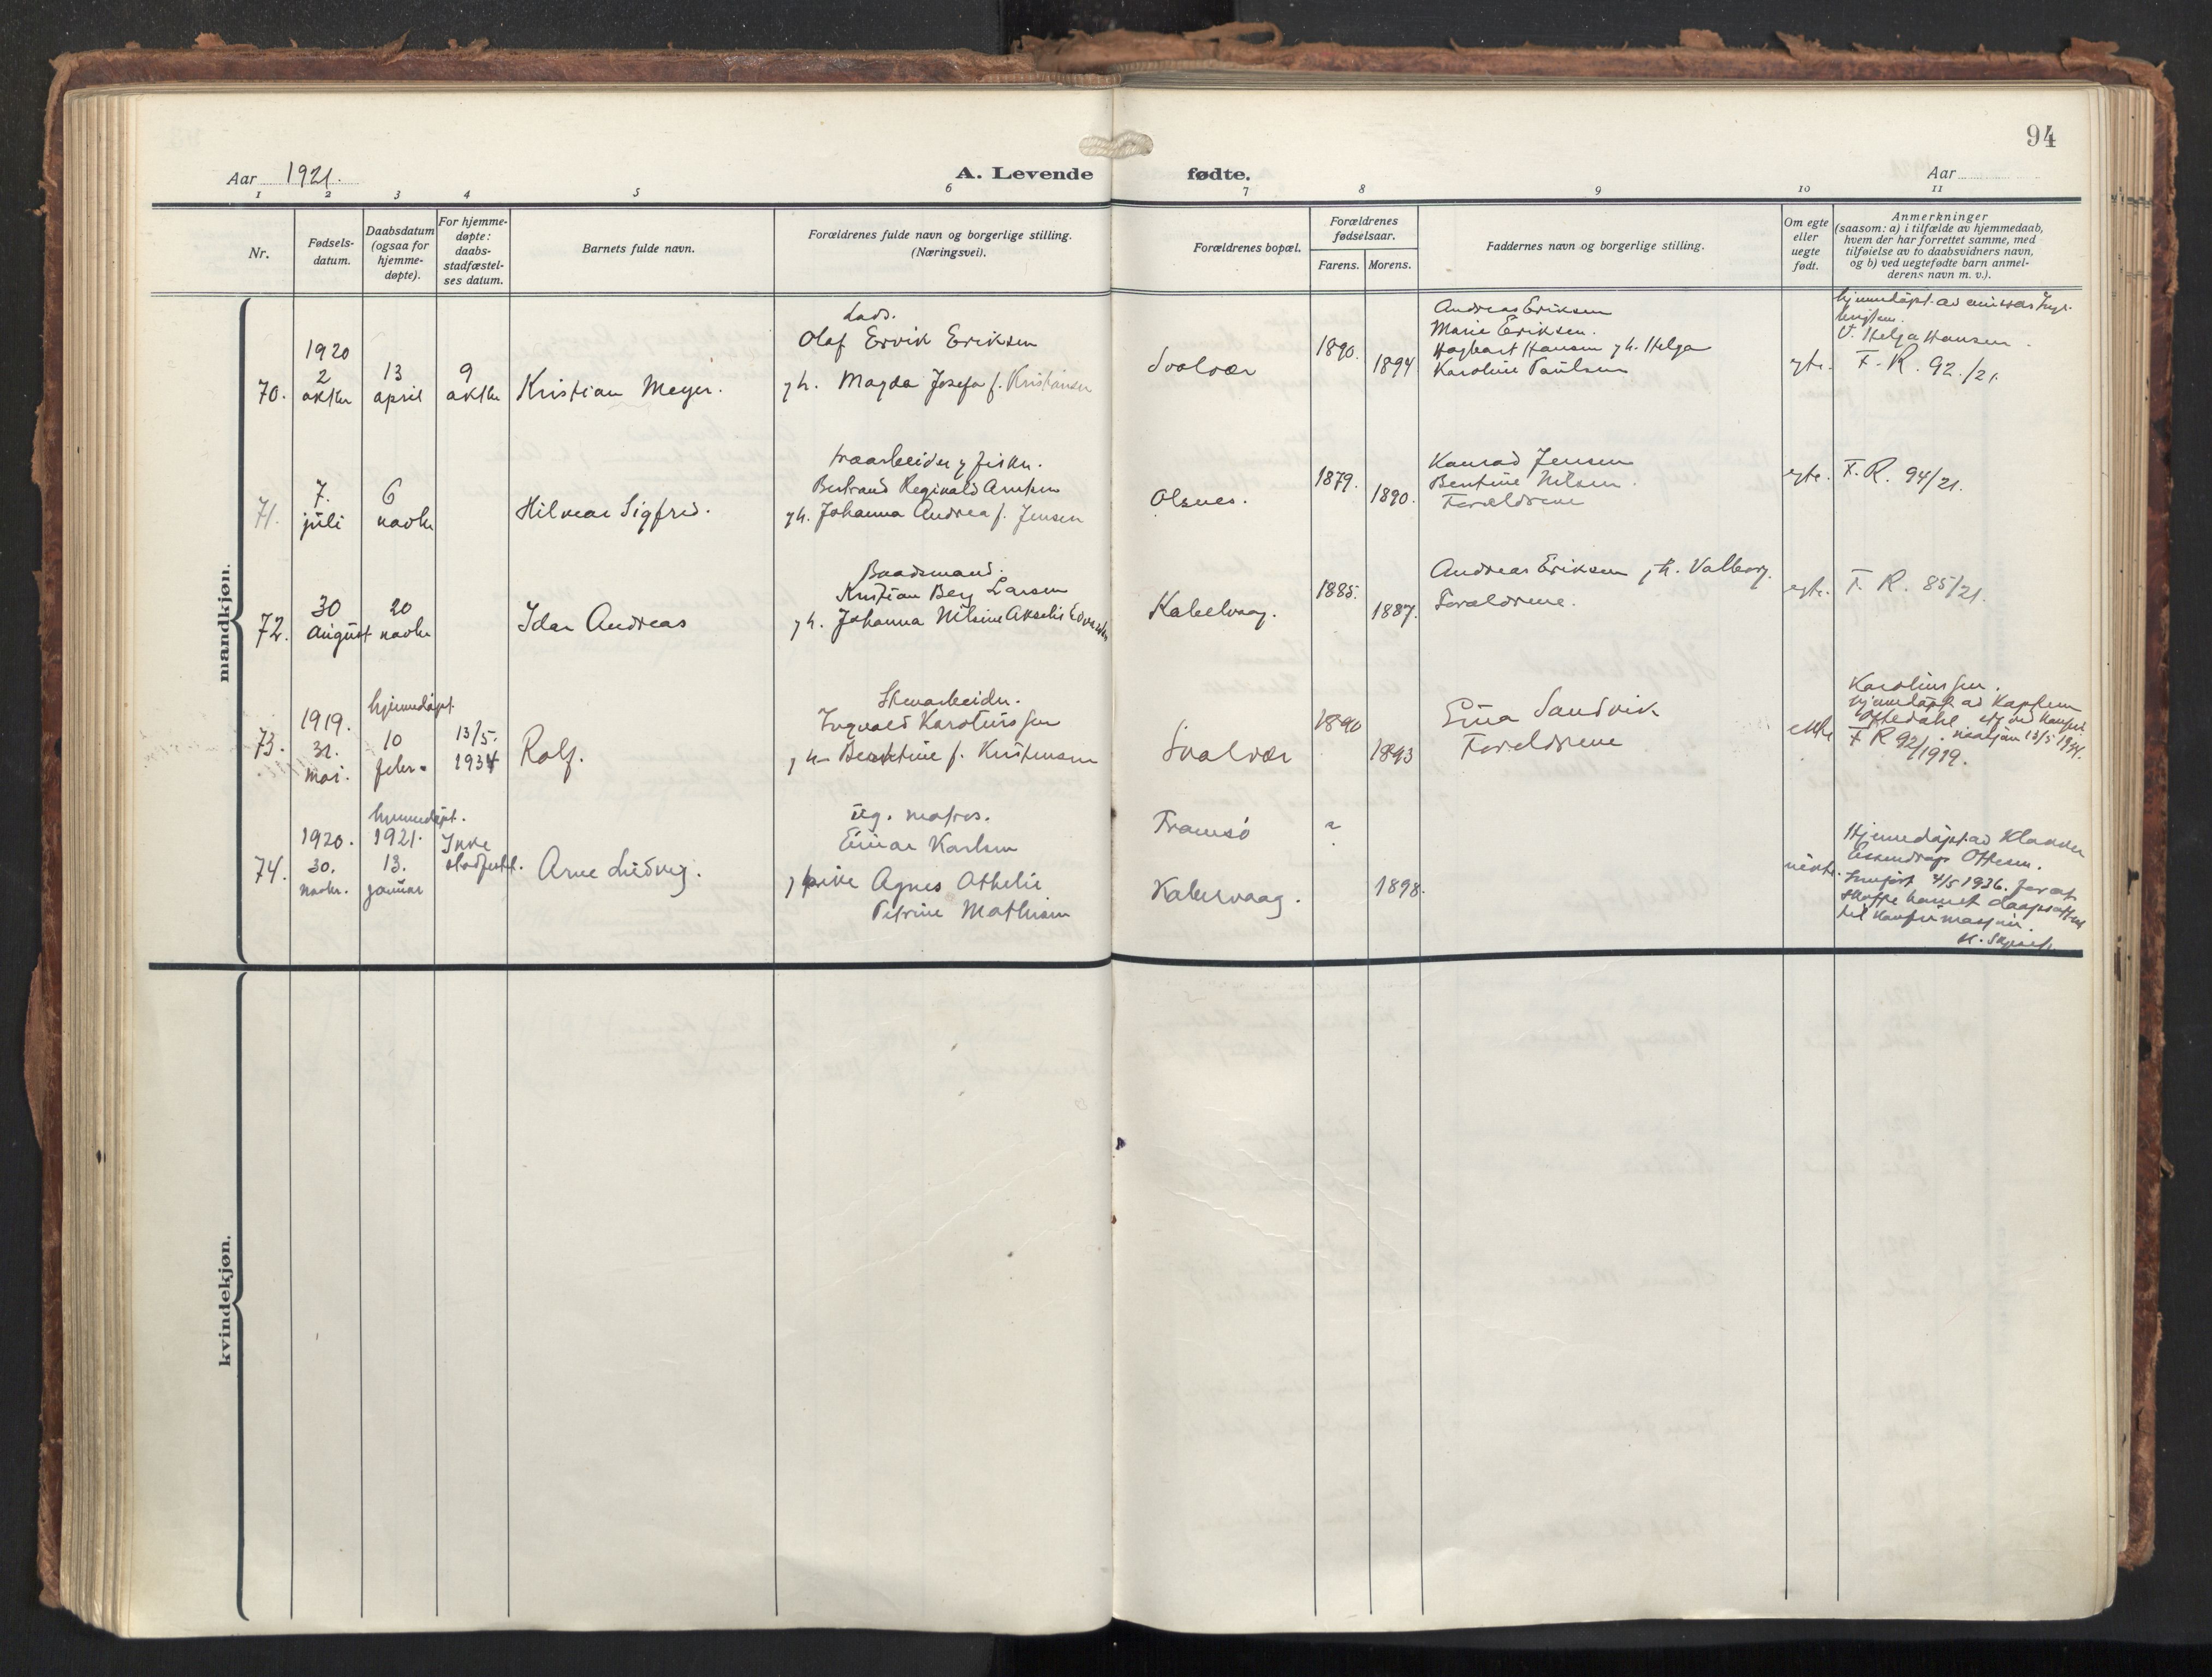 94
Aar 1921.
A. Levende fødte.
Aar
1 2 3 4 5 6 7 8 9 10 11
Nr.
Fødsels-
datum.
Daabsdatum
(ogsaa for
hjemme-
døpte).
For hjemme-
døpte:
daabs-
stadfæstel-
ses datum.
Barnets fulde navn.
Forældrenes fulde navn og borgerlige stilling.
(Næringsvei).
Forældrenes bopæl.
Forældrenes
fødselsaar.
Farens. Morens.
Faddernes navn og borgerlige stilling.
Om egte
eller
uegte
født.
Anmerkninger
(saasom: a) i tilfælde av hjemmedaab,
hvem der har forrettet samme, med
tilføielse av to daabsvidners navn,
og b) ved uegtefødte barn anmel-
derens navn m. v.).
mandkjøn.
70.
1920
2
oktbr
13
april
9
oktbr
Kristian Meyer.
Lods.
Olaf Ervik Eriksen
g h. Magda Josefa f. Kristiansen
Svolvær
1890.
1894
Andreas Eriksen
Marie Eriksen.
Hagbart Hansen g h. Helga
Karoline Paulsen
egte.
hjemmedøpt av
V. Helga Hansen.
F. R. 92/21.
71.
7.
juli
6
novbr
Hilmar Sigfred.
træarbeider g fisker.
Bertrand Reginald Arntsen
g h. Johanna Andrea f. Jensen
Olsnes.
1879.
1890.
Konrad Jensen
Bentine Nilsen.
Forældrene
egte.
F. R. 94/21.
72.
30
august
20
novbr
Idar Andreas
Baadsmand.
Kristian Berg Larsen
g h. Johanna Nilsine Akselie Edvardsen
Kabelvaag.
1885.
1887.
Andreas Eriksen g h. Valborg.
Forældrene.
egte.
F. R. 85/21.
73.
1919.
31.
mai.
hjemmedøpt
10
febr.
13/5.
1934
Rolf.
Skoarbeider.
Ingvald Karoliussen
g h Berntine f. Kristensen
Svolvær
1890
1893
Eina Sandvik
Foreldrene
ekte
Karoliussen.
hjemmedøpt av Kapellan
Oftedahl. stf ved konfir
masjon 13/5 1934.
F R 92/1919.
74.
1920.
30.
novbr.
hjemmedøpt.
1921.
13.
januar
Ikke
stadfestet.
Arne Ludvig.
ug. matros.
Einar Karlsen
g pike Agnes Othelie
Petrine Mathisen
Tromsø
Kalervaag.
?
1898.
uekte.
Hjemmedøpt av Klokker
Essendrop Ottesen.
Innført 4/5 1936. for at
skaffe barnet daapsattest
til konfirmasjon.
kvindekjøn.